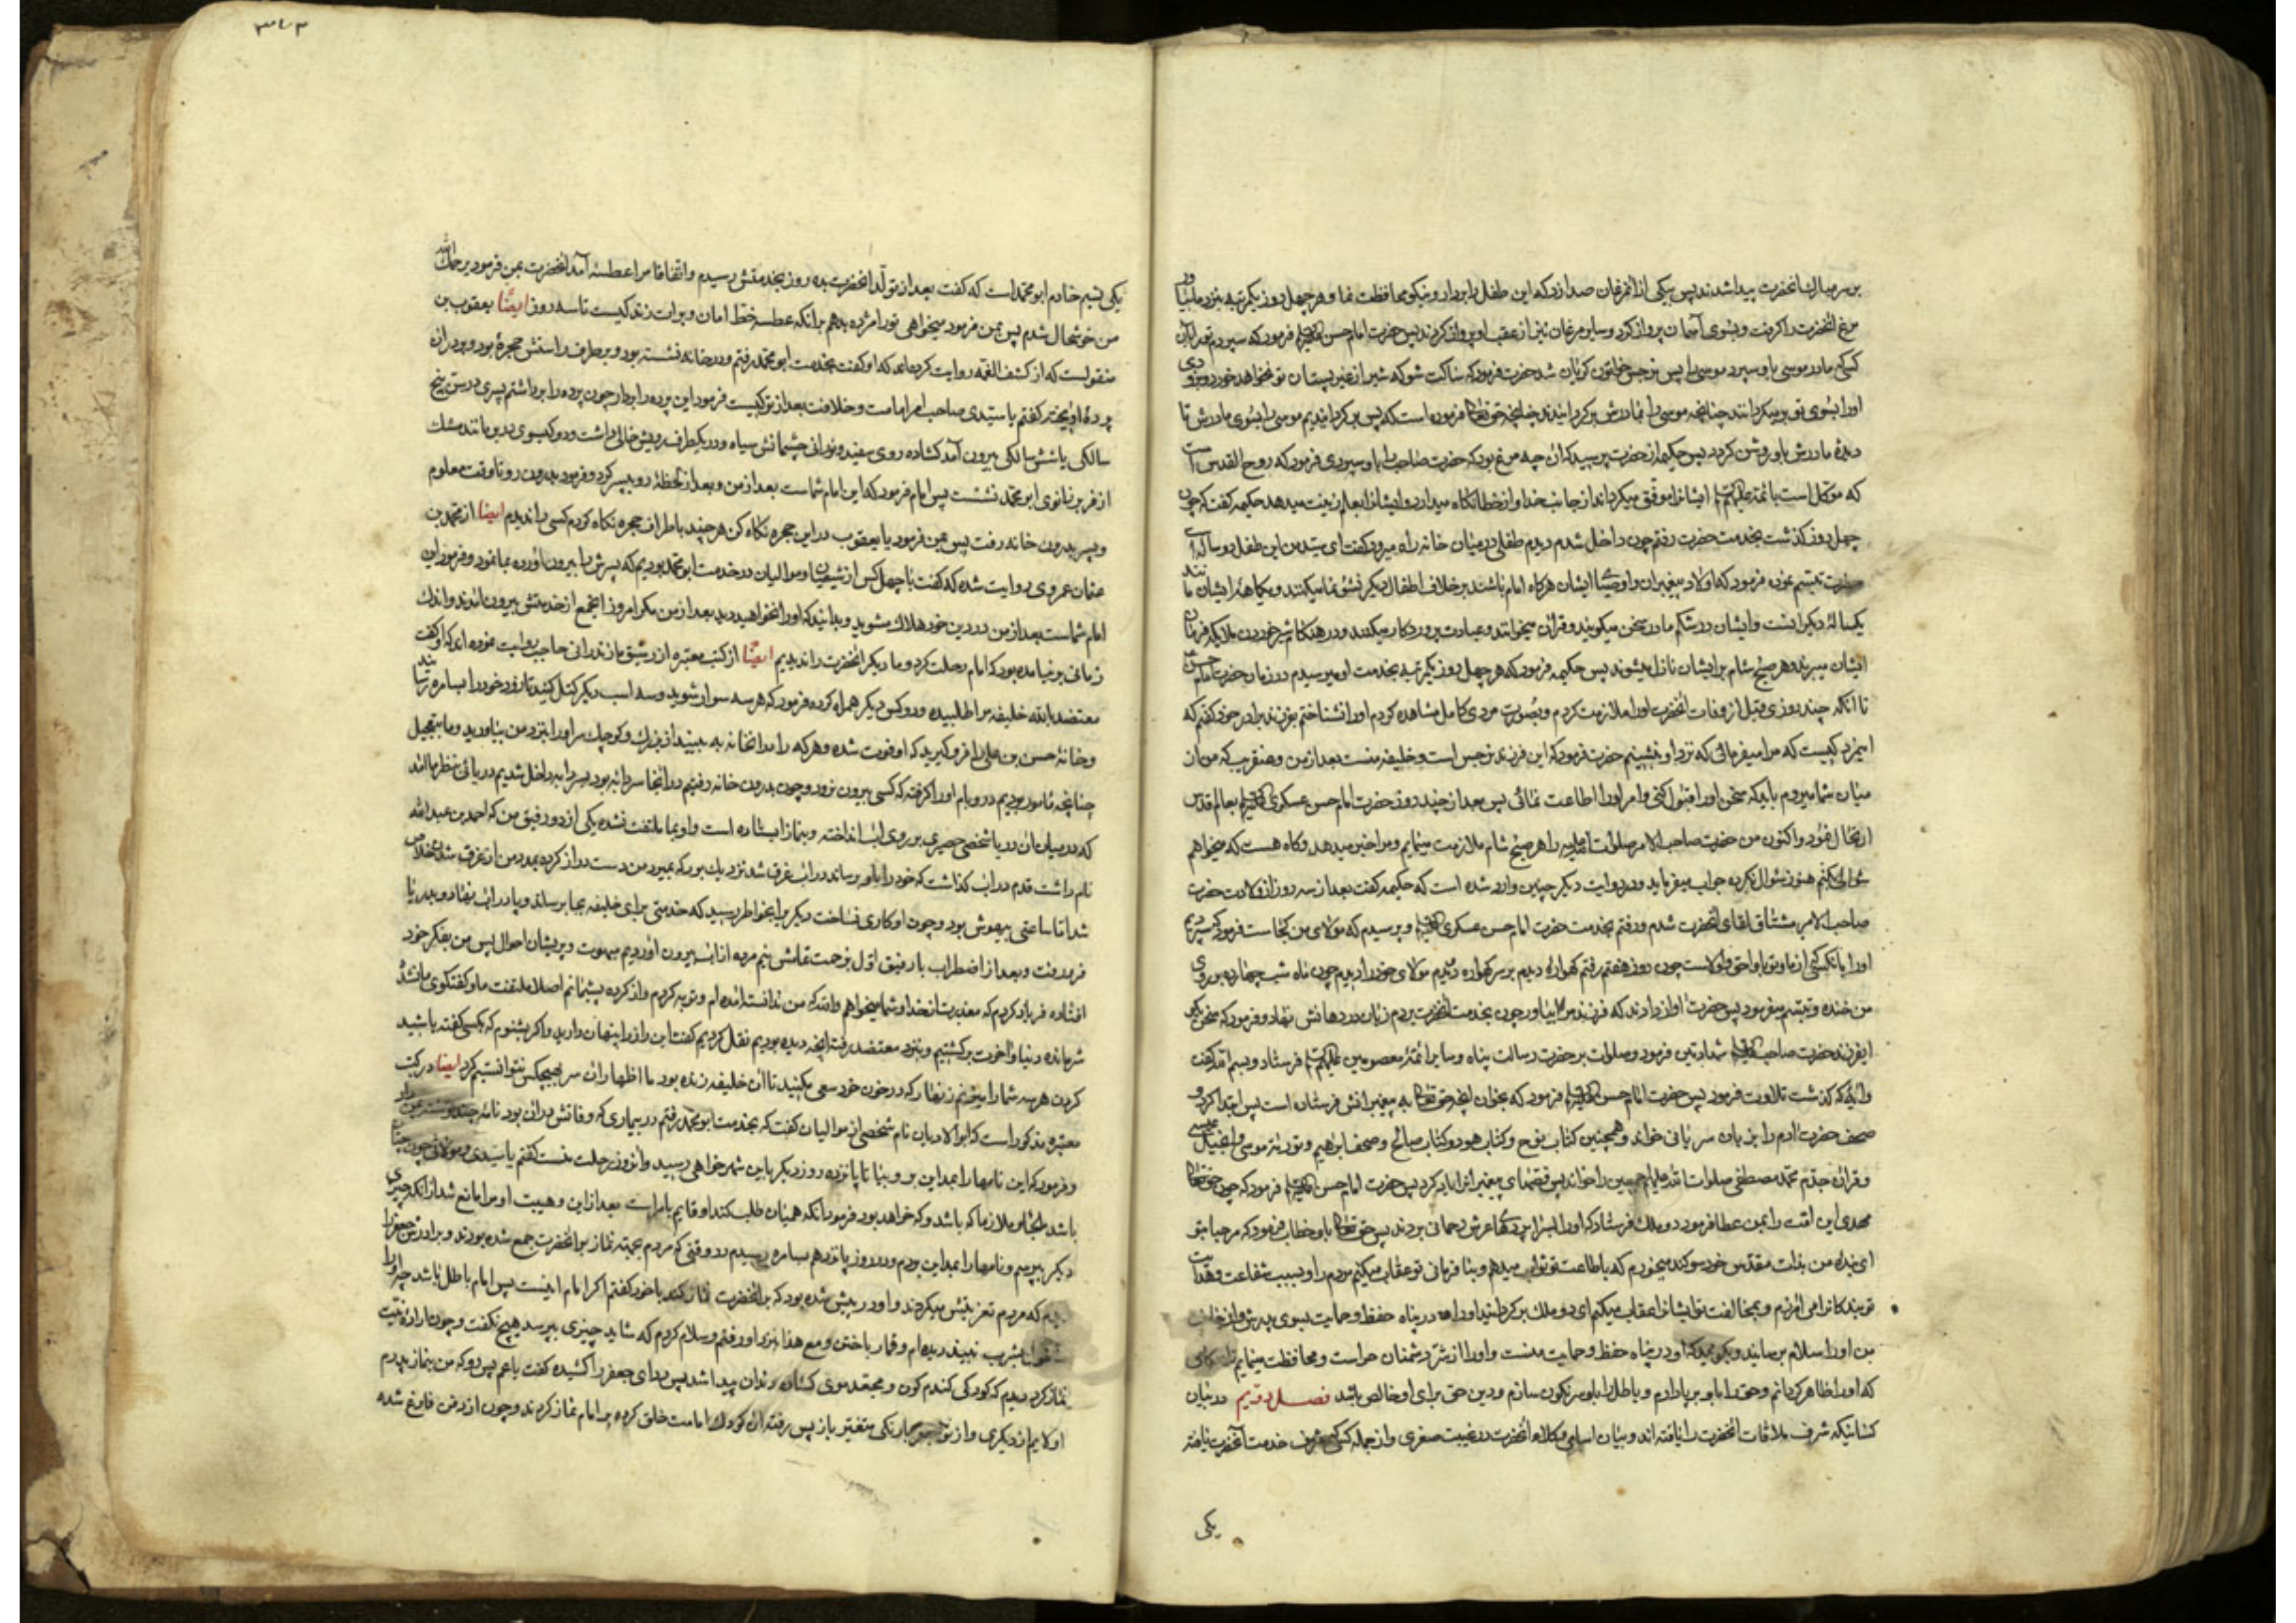 بر سر مبارک انحضرت پیدا شدند پس بیکی از انمرغان صدا زد که این طفل را بردار و نیکو محافظت نما و هر چهل روز یکمرتبه بنزد ما بیاور
مرغ انحضرت را کرفت و بسوی آسمان پرواز کرد و سایر مرغان نیز از عقب او پرواز کردند پس حضرت امام حسن فرمود که سپردم تو را بآن
کسی که مادر موسی باو سپرد موسی را پس نرجس خاتون کریان شد حضرت فرمود که ساکت شو که شیر از غیر پستان تو نخواهد خورد و بزودی
اورا بسوی تو برمیکردانند چنانچه موسی را بمادرش برکردانیدند چنانچه حق تعالی فرموده است که پس برکردانیدیم موسی را بسوی مادرش تا
دیدۀ مادرش باو روشن کردد پس حکیمه از حضرت پرسید که ان چه مرغ بود که حضرت صاحب را باو سپردی فرمود که روح القدس است
که موکل است بائمه ایشانرا موفق میکرداند از جانب خدا و از خطا نکاه میدارد و ایشانرا بعلم زینت میدهد حکیمه کفت که چون
چهل روز کذشت بخدمت حضرت رفتم چون داخل شدم دیدم طفلی در میان خانه راه میرود کفتم ای سید من این طفل دو ساله است
حضرت تبسم نموده فرمود که اولاد پیغمبران و اوصیا ایشان هرکاه امام باشند برخلاف اطفال دیکر نشو نما میکنند و یکماهۀ ایشان مانند
یکسالۀ دیکرانست و ایشان در شکم مادر سخن میکویند و قرآن میخوانند و عبادت پروردکار میکنند و در هنکام شیر خوردن ملایکه فرمان
ایشان میبرند و هر صبح و شام بر ایشان نازل میشوند پس حکیمه فرمود که هر چهل روز یکمرتبه بخدمت او میرسیدم در زمان حضرت امام حسن
تا انکه چند روزی قبل از وفات انحضرت اورا ملازمت کردم و بصورت مردی کامل مشاهده کردم اورا نشناختم بفرزند برادر خود کفتم که
اینمرد کیست که مرا میفرمائی که نزد او بنشینم حضرت فرمود که این فرزند نرجس است و خلیفه منست بعد از من و عنقریب که من از
میان شما میروم باید که سخن اورا قبول کنی و امر اورا اطاعت نمائی پس بعد از چند روز حضرت امام حسن عسکری بعالم قدس
ارتحال نمود و اکنون من حضرت صاحب الامر صلوات الله علیه را هر صبح شام ملازمت مینمایم و مرا خبر میدهد و کاه هست که میخواهم
سوالی کنم هنوز سؤال نکرده جواب میفرماید و در روایت دیکر چنین وارد شده است که حکیمه کفت بعد از سه روز از ولادت حضرت
صاحب الامر مشتاق لقای انحضرت شدم و رفتم بخدمت حضرت امام حسن عسکری و پرسیدم که مولای من کجاست فرمود که سپردیم
اورا بانکسی که از ما و تو باو احق و اولاست چون روز هفتم رفتم کهواره دیدم بر سر کهواره دویدم مولای خود را دیدم چون ماه شب چهارده بر روی
من خنده و تبسم میفرمود پس حضرت اواز دادند که فرزند مرا بیاور چون بخدمت انحضرت بردم زبان در دهانش نهاد و فرمود که سخن بکو
ایفرزند حضرت صاحب شهادتین فرمود و صلوات بر حضرت رسالت پناه و سایر ائمۀ معصومین فرستاد و بسم الله کفت
و ایۀ که کذشت تلاوت فرمود پس حضرت امام حسن فرمود که بخوان انچه حق تعالی به پیغمبرانش فرستاده است پس ابتدا کرد و
صحف حضرت ادم را بزبان سریانی خواند و همچنین کتاب نوح و کتاب هود و کتاب صالح و صحف ابراهیم و توریة موسی و انجیل عیسی
و قران جدم محمد مصطفی صلوات الله علیهم اجمعین را خواند پس قصهای پیغمبرانرا یاد کرد پس حضرت امام حسن فرمود که چون حق تعالی
مهدی این امت را بمن عطا فرمود دو ملک فرستاد که اورا بسراپردهای عرش رحمانی بردند پس حق تعالی باو خطاب فرمود که مرحبا بتو
ای بندۀ من بذات مقدس خود سوکند میخورم که باطاعت تو ثواب میدهم و بنافرمانی تو عقاب میکنم مردم را و بسبب شفاعت و هدایت
تو بندکانرا می امرزم و بمخالفت تو ایشانرا عقاب میکنم ای دو ملک برکردانید اورا در پناه حفظ و حمایت بسوی پدرش و از جانب
من اورا سلام برسانید و بکوئید که او در پناه حفظ و حمایت منست و اورا از شر دشمنان حراست و محافظت مینمایم تا
که اورا ظاهر کردانم و حق را باو برپا دارم و باطل را باو سرنکون سازم و دین حق برای او خالص باشد فصل دویم در بیان
کسانیکه شرف ملاقات انحضرت را یافته اند و بیان اسامی وکلاء انحضرت در غیبت صغری و از جمله کسی که بشرف خدمت آنحضرت یافته
یکی
۳۸۳
یکی نسیم خادم ابو محمد است که کفت بعد از تولد انحضرت بده روز بخدمتش رسیدم و اتفاقا مرا عطسه آمد انحضرت بمن فرمود یرحمک الله
من خوشحال شدم پس بمن فرمود میخواهی تورا مژده بدهم برانکه عطسه خط امان و برات زندکیست تا سه روز ایضا یعقوب بن
منقولست که از کشف الغمه روایت کرده‌اند که او کفت بخدمت ابو محمد رفتم و در خانه نشسته بود و بر طرف راستش حجرۀ بود و بر در ان
پردۀ اویخته کفتم یا سیدی صاحب امر امامت و خلافت بعد از تو کیست فرمود این پرده را بردار چون پرده را برداشتم پسری در سن پنج
سالکی یا شش سالکی بیرون آمد کشاده روی سفید و نورانی چشمانش سیاه و در یکطرف رویش خالی داشت و دو کیسوی مانند مشک
از فر بر زانوی ابو محمد نشست پس امام فرمود که این امام شماست بعد از من و بعد از لحظۀ رو بپسر کرد و فرمود بدرون رو تا وقت معلوم
و پسر بدرون خانه رفت پس بمن فرمود یا یعقوب در این حجره نکاه کن هر چند باطراف حجره نکاه کردم کسی را ندیدم ایضا از محمد بن
عثمان عمروی روایت شده که کفت با چهل کس از شیعیان و موالیان در خدمت ابو محمد بودیم که پسرش را بیرون اورده بما نمود و فرمود این
امام شماست بعد از من در دین خود هلاک مشوید و بدانید که اورا نخواهید دید بعد از من مکر امروز انجمع از خدمتش بیرون امدند و اندک
زمانی برنیامده بود که امام رحلت کرد و ما دیکر انحضرت را ندیدیم ایضا از کتب معتبره از رشیق مازندرانی حاجب روایت نموده اند که او کفت
معتضد بالله خلیفه مرا طلبیده و دو کس دیکر همراه کرده فرمود که هر سه سوار شوید و سه اسب دیکر کتل کنید تا زود خود را بسامره رسانید
و خانۀ حسن بن علی را فرو کیرید که او فوت شده و هر که را در انخانه به بینید از بزرک و کوچک سر اورا بنزد من بیاورید و ما بتعجیل
چنانچه مامور بودیم در و بام اورا کرفته که کسی بیرون نرود و چون بدرون خانه رفتیم در انجا سردابه بود بسردابه داخل شدیم دریائی بنظر ما امد
که در میان ان دریا شخصی حصیری بر روی اب انداخته و بنماز ایستاده است و او بما ملتفت نشده یکی از دو رفیق من که احمد بن عبدالله
نام داشت قدم در اب کذاشت که خود را باو برساند در اب غرق شد نزدیک بود که بمیرد من دست دراز کرده بمدد من از غرق شدن خلاص
شد اما تا ساعتی بیهوش بود و چون او کاری نساخت دیکر برا بخاطر رسید که خدمتی برای خلیفه بجا برساند و پا در اب نهاد و بدریا
فرو رفت و بعد از اضطراب بار رفیق اول بزحمت تمامش نیم مرده از اب بیرون اوردیم مبهوت و پریشان احوال پس من بفکر خود
افتاده فریاد کردم که معذرت از خدا و شما میخواهم والله که من ندانسته امده ام و توبه کردم و از کرده پشیمانم اصلا ملتفت ما و کفتکوی ما نشد
شرمانده دنیا و اخرت برکشتیم و بنزد معتضد رفته انچه دیده بودیم نقل کردیم کفت این راز را پنهان دارید و اکر بشنوم که بکسی کفته باشید
کردن هر سه شما را میزنم زنهار که در خون خود سعی مکنید تا ان خلیفه زنده بود ما اظهار ان سر بهیچکس نتوانستیم کرد ایضا در کتب
معتبره مذکور است که ابو الادیان نام شخصی از موالیان کفت که بخدمت ابو محمد رفتم در بیماری که وفاتش در ان بود نامۀ چند نوشته بمن داد
و فرمود که این نامها را بمداین بر و بینا تا پانزده روز دیکر باین شهر خواهی رسید و انروز رحلت منست کفتم یا سیدی و مولای چون چنان
باشد ملازم که باشد و که خواهد بود فرمود انکه همیان طلب کند او قایم بامر است بعد از این و هیبت او مرا مانع شد از انکه چیزی
دیکر بپرسم و نامها را بمداین بردم و در روز پانزدهم بسامره رسیدم در وقتی که مردم بجهته نماز بر انحضرت جمع شده بودند و برادرش جعفر را
دیدم که مردم تعزیتش میکردند و او در پیش شده بود که بر انحضرت نماز کند با خود کفتم اکر امام اینست پس امام باطل باشد چه او را
بشرب نبیذ دیده ام و قمار باختن و مع هذا بنزد او رفتم و سلام کردم که شاید چیزی بپرسد هیچ نکفت و چون ارادۀ
نماز کرد دیدم که کودکی کندم کون و مجعد موی کشاده دندان پیدا شد پس ردای جعفر را کشیده کفت یا عم پس رو که من بنماز پدرم
اولایم از دیکری و از تو جعفر با رنکی متغیر باز پس رفته ان کودک امامت خلق کرده بر امام نماز کردند و چون از دفن فارغ شده